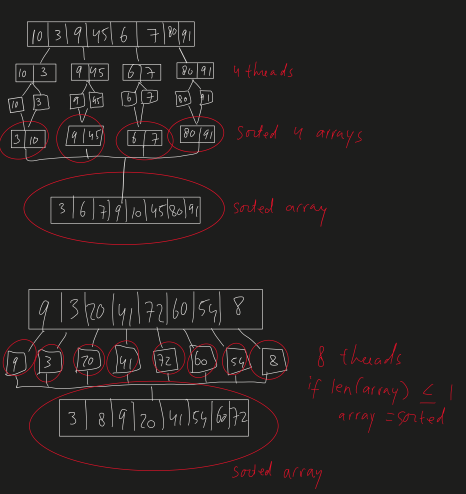 10 3 9 45 6 7 80 91
10 3 9 45 6 7 80 91 4 threads
10 3 9 45 6 7 80 91
3 10 9 45 6 7 80 91 sorted 4 arrays
3 6 7 9 10 45 80 91 sorted array
9 3 20 41 72 60 54 8
9 3 20 41 72 60 54 8 8 threads
if len(array) ≤ 1
array = sorted
3 8 9 20 41 54 60 72
sorted array